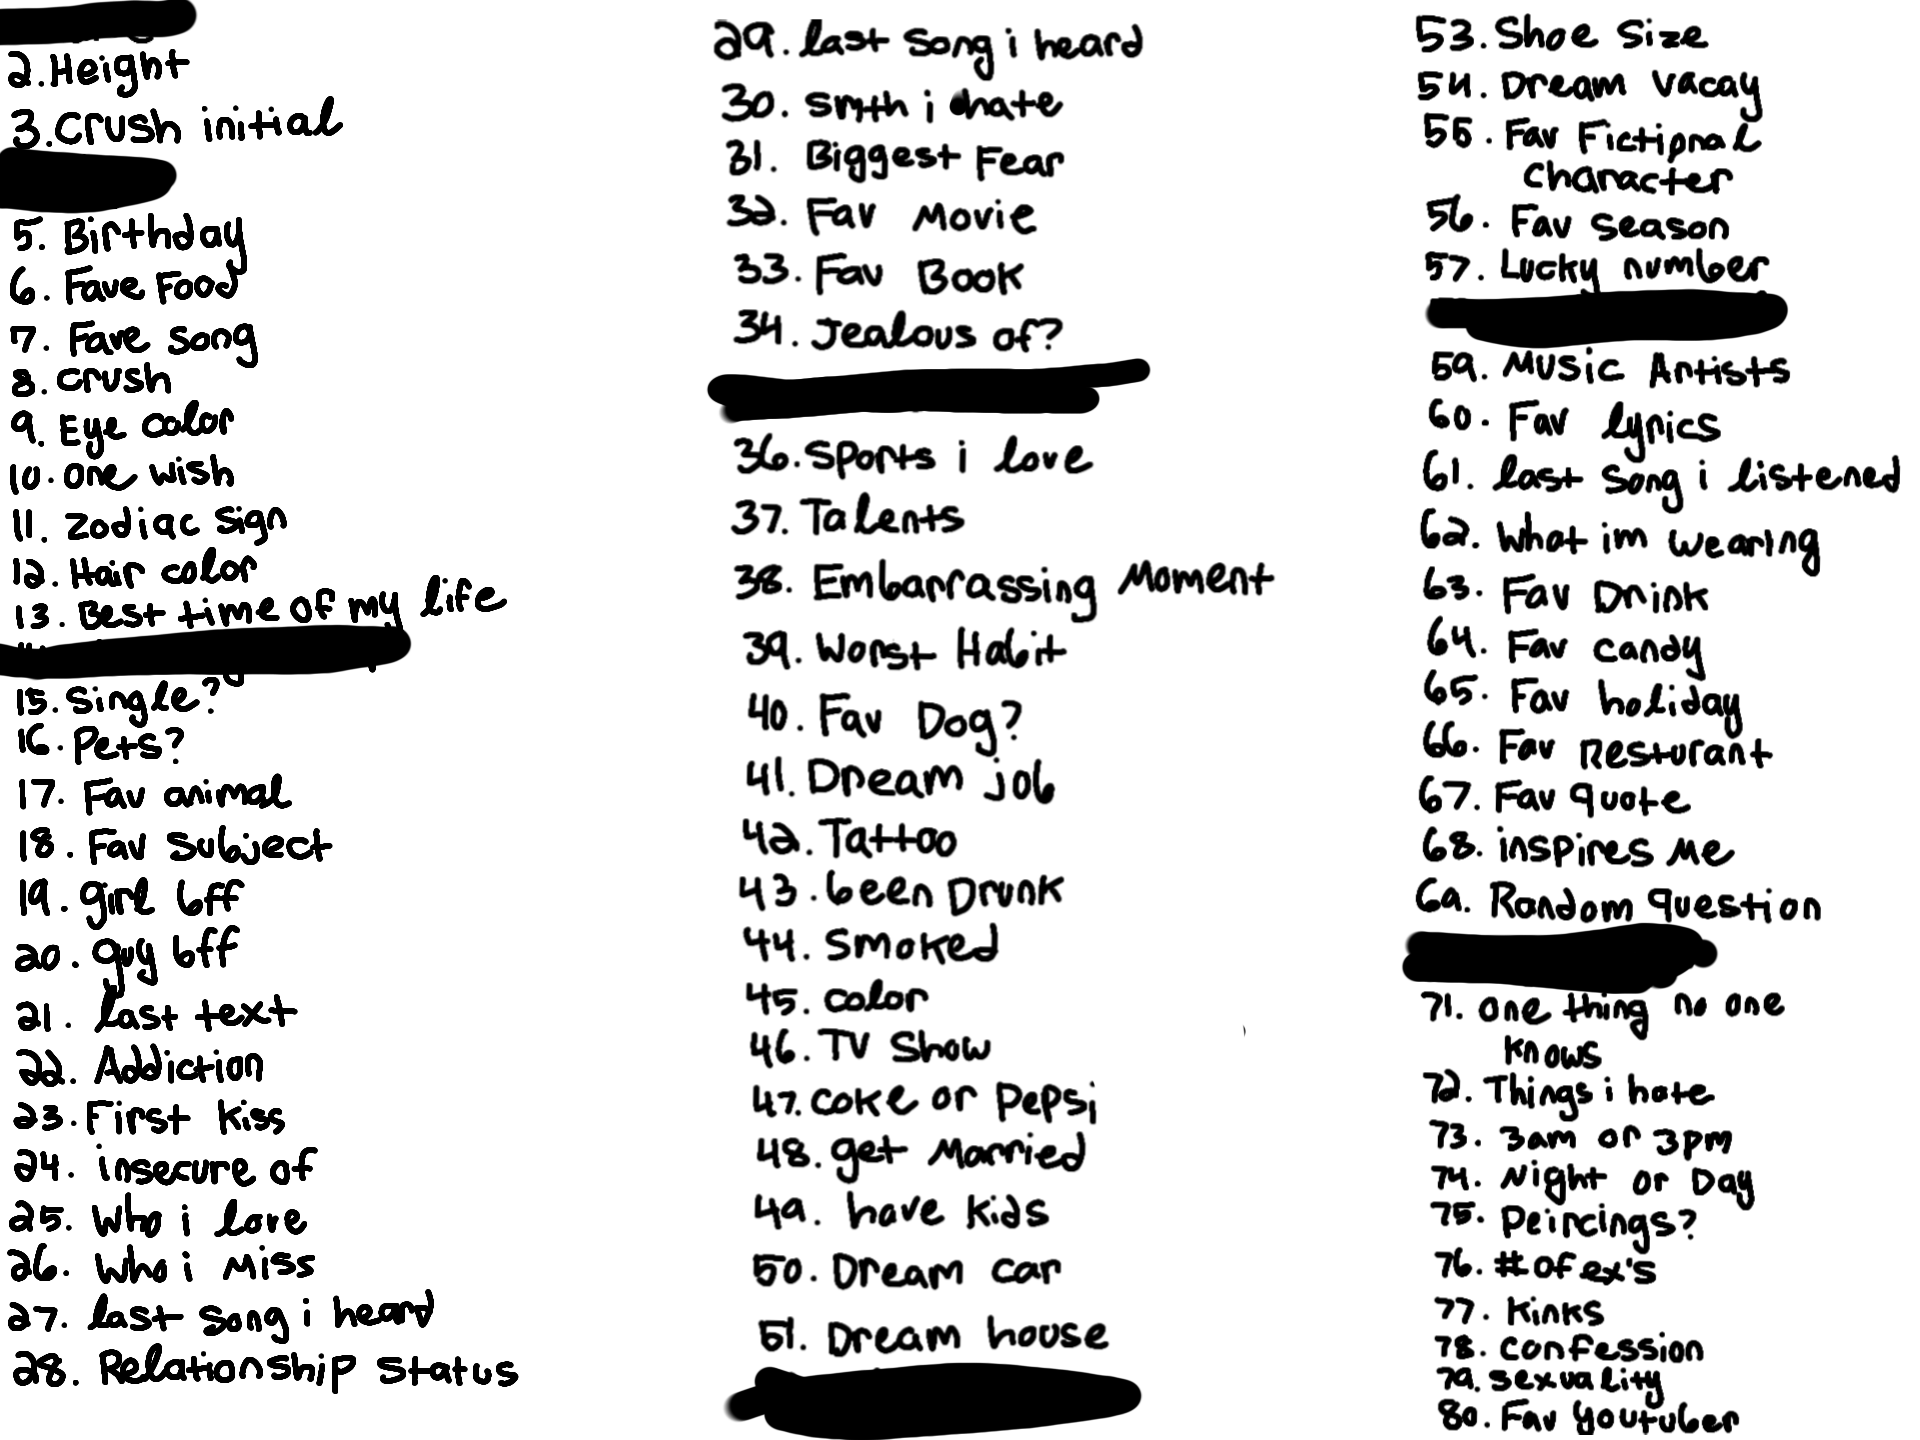 2. Height
3. Crush initial
5. Birthday
6. Fave Food
7. Fave song
8. crush
9. Eye color
10. one wish
11. zodiac sign
12. Hair color
13. Best time of my life
15. Single?
16. Pets?
17. Fav animal
18. Fav subject
19. girl bff
20. guy bff
21. last text
22. Addiction
23. First kiss
24. insecure of
25. Who i love
26. Who i Miss
27. last song i heard
28. Relationship status
29. last song i heard
30. smth i hate
31. Biggest Fear
32. Fav Movie
33. Fav Book
34. Jealous of?
36. Sports i love
37. Talents
38. Embarrassing Moment
39. Worst Habit
40. Fav Dog?
41. Dream job
42. Tattoo
43. been Drunk
44. Smoked
45. color
46. TV Show
47. coke or Pepsi
48. get Married
49. have kids
50. Dream car
51. Dream house
53. Shoe Size
54. Dream vacay
55. Fav Fictional
character
56. Fav season
57. Lucky number
59. Music Artists
60. Fav lyrics
61. last song i listened
62. What im wearing
63. Fav Drink
64. Fav candy
65. Fav holiday
66. Fav Resturant
67. Fav quote
68. inspires Me
69. Random question
71. one thing no one
knows
72. Things i hate
73. 3am or 3pm
74. Night or Day
75. Peircings?
76. # of ex's
77. Kinks
78. confession
79. sexuality
80. Fav Youtuber